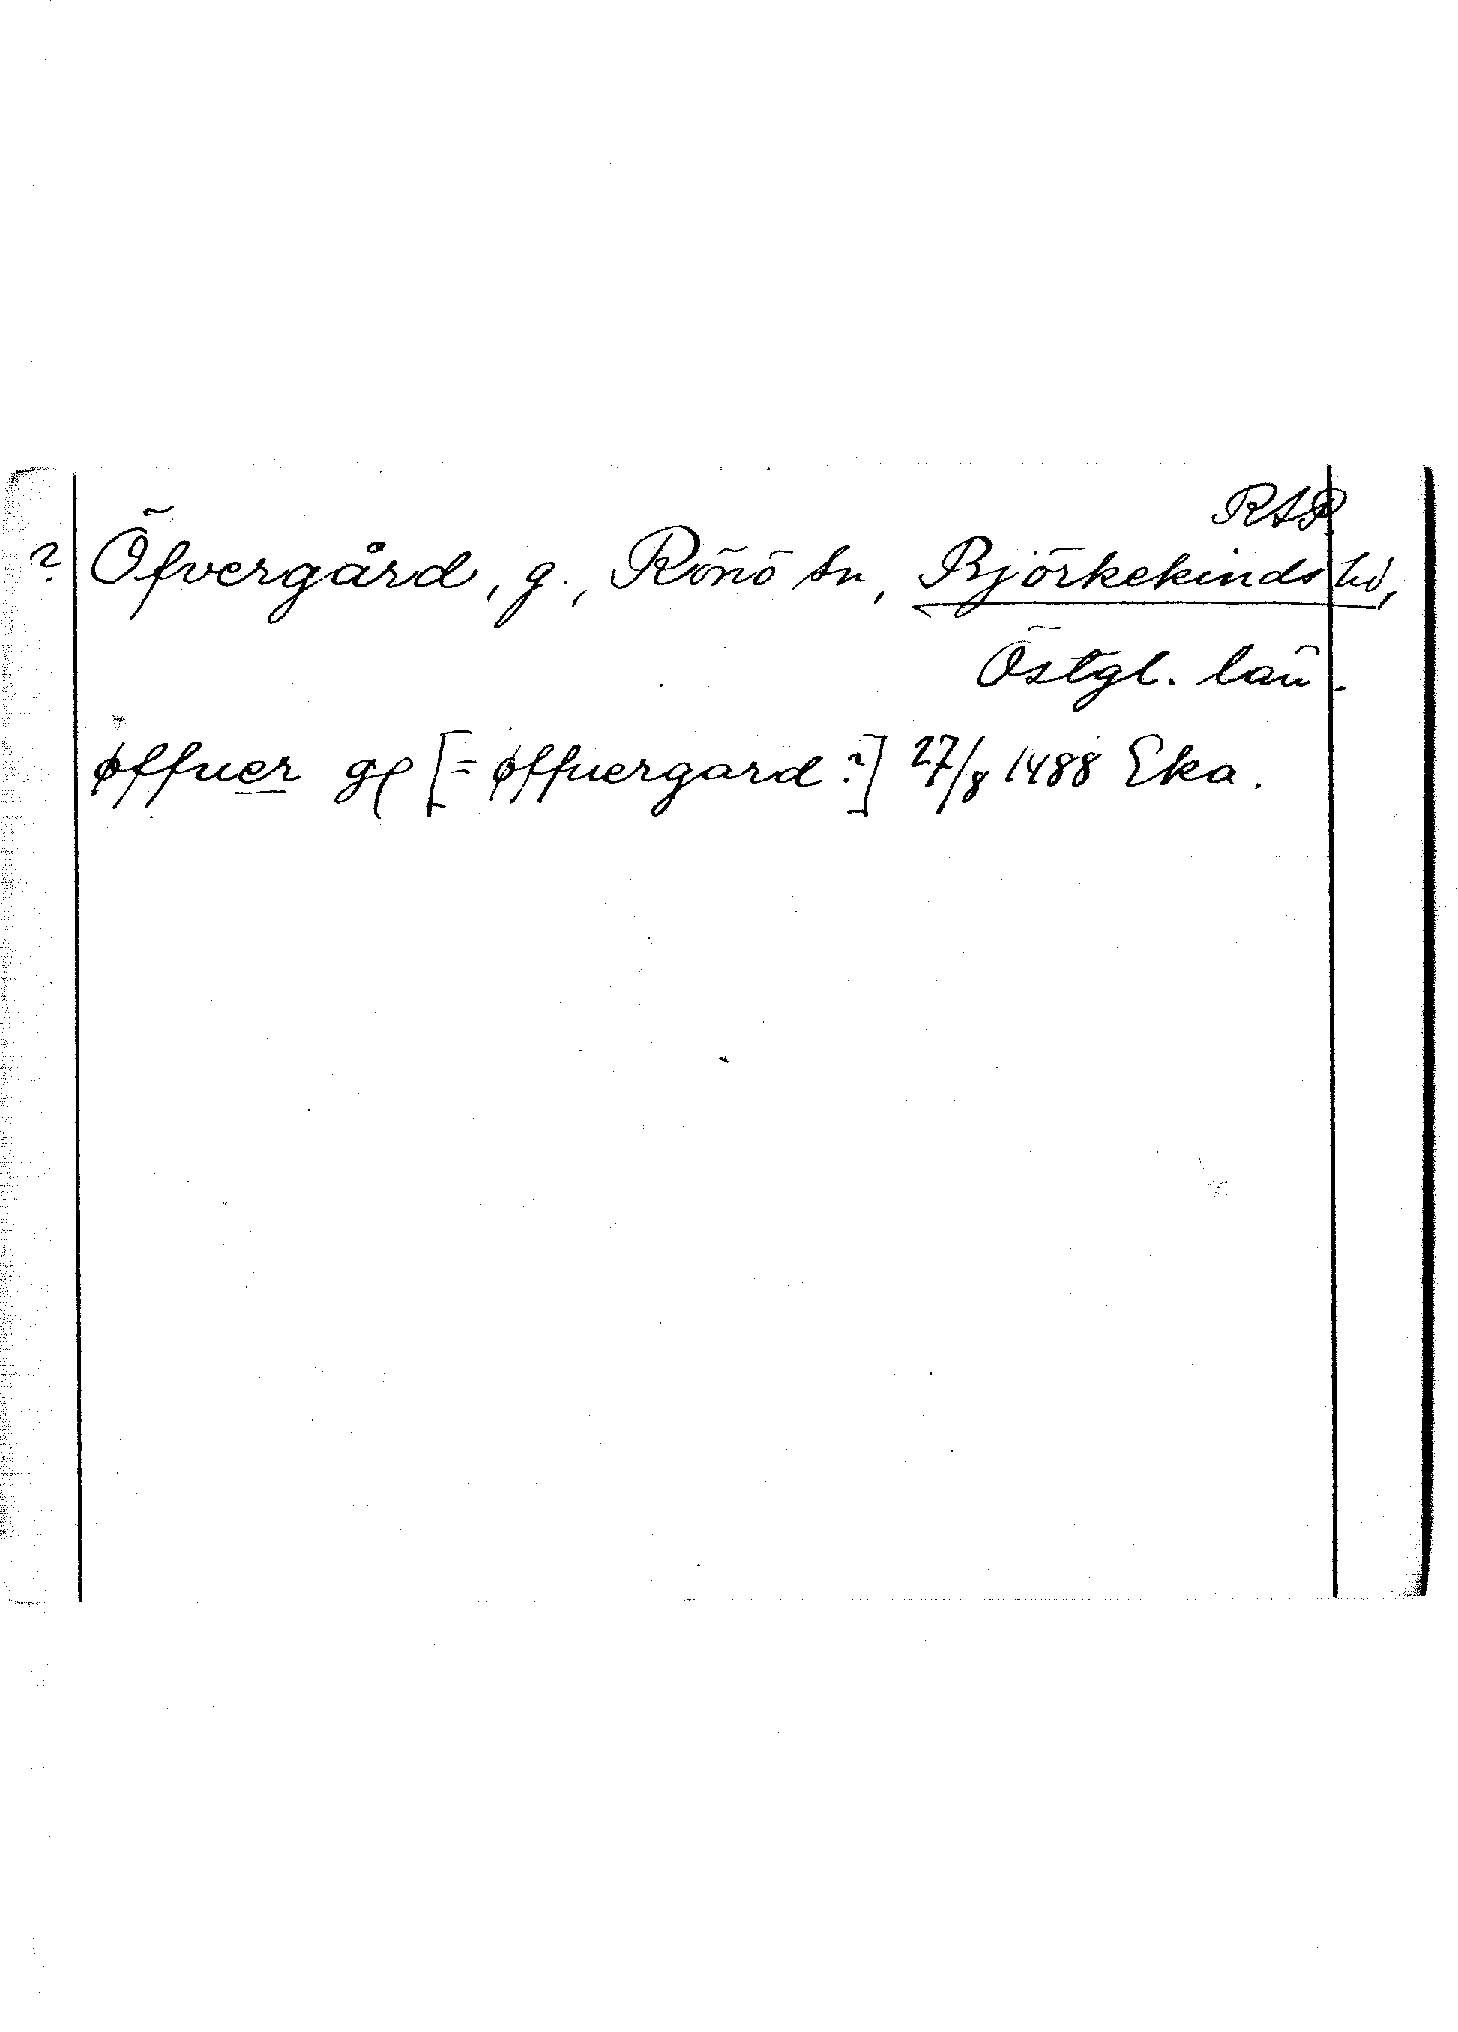 RAP
? Öfvergård, g., Rönö sn, Björkekinds hd,
Östgl. län.
øffuer gꝭ [= øffuergard?] 27/8 1488 Eka.